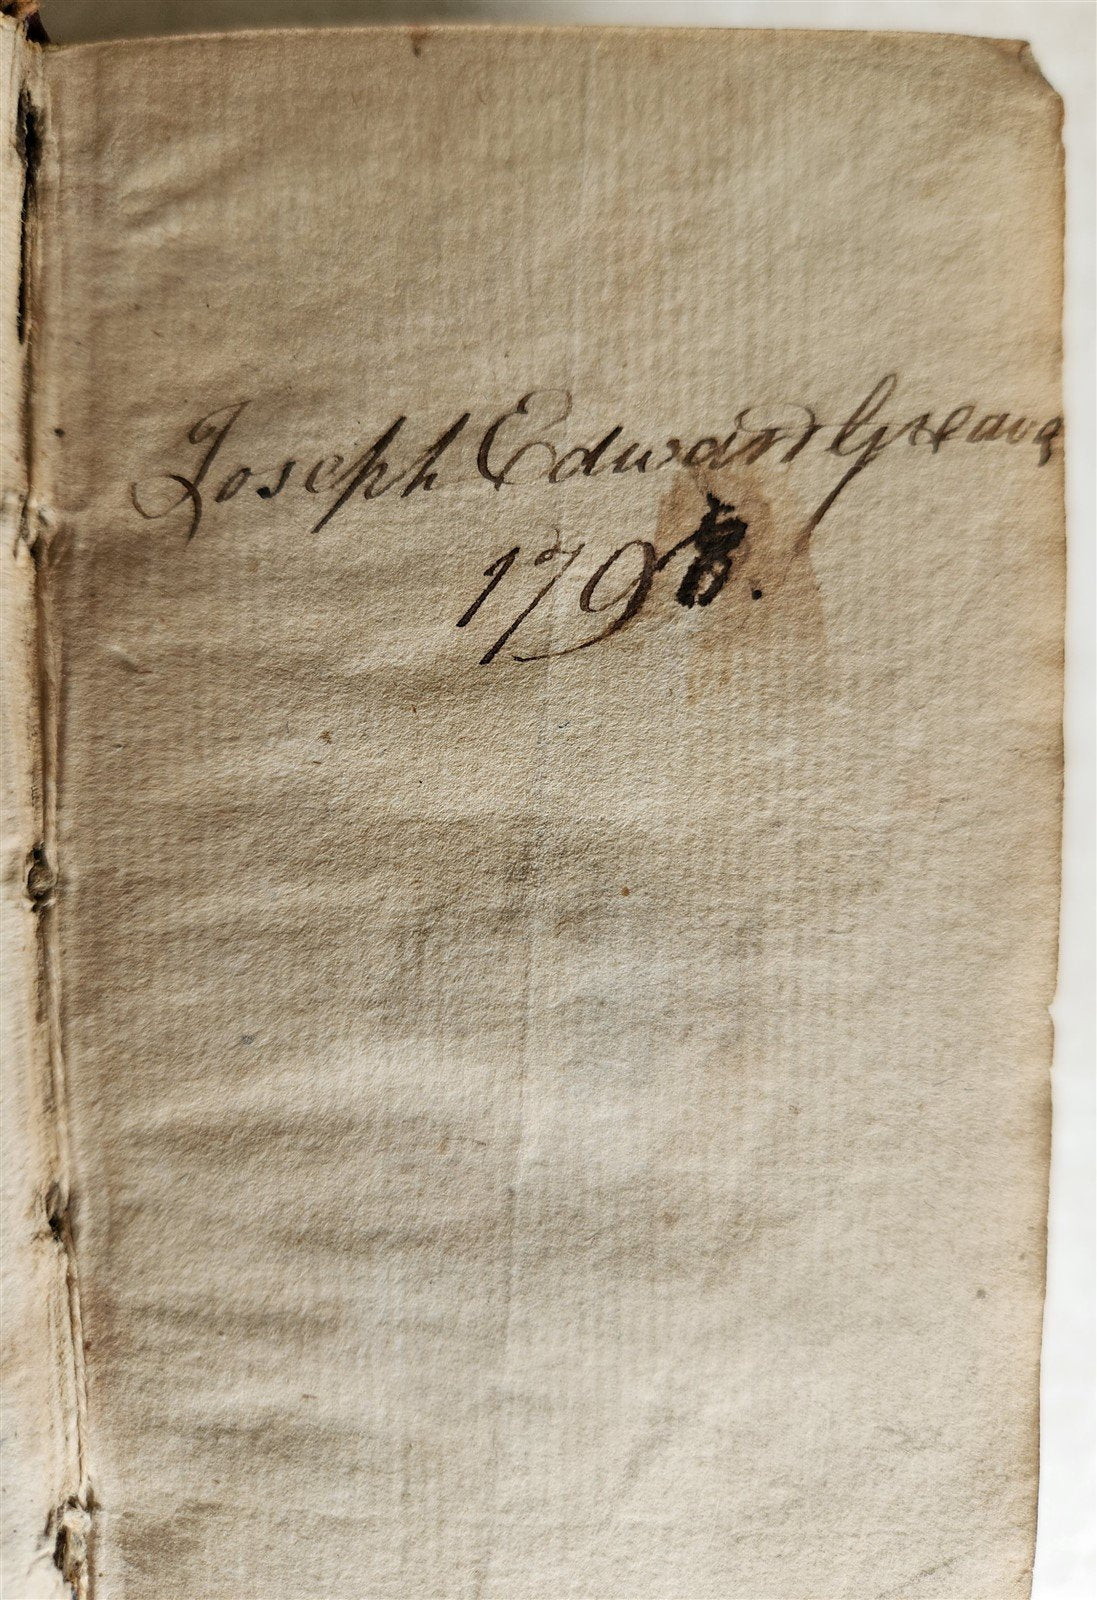 Joseph Edward Greaves
179